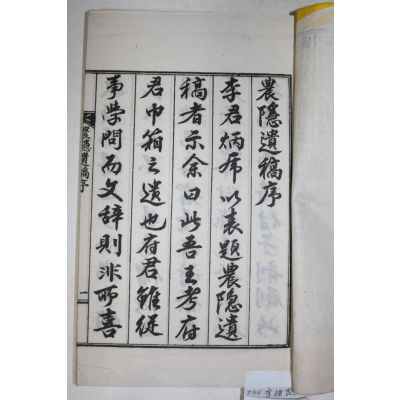 農隱遺稿序
李君炳席以表題農隱遺
稿者示余曰此吾王考府
君巾箱之遺也府君雖從
事學問而文辭則非所喜
農隱遺稿序
一
234